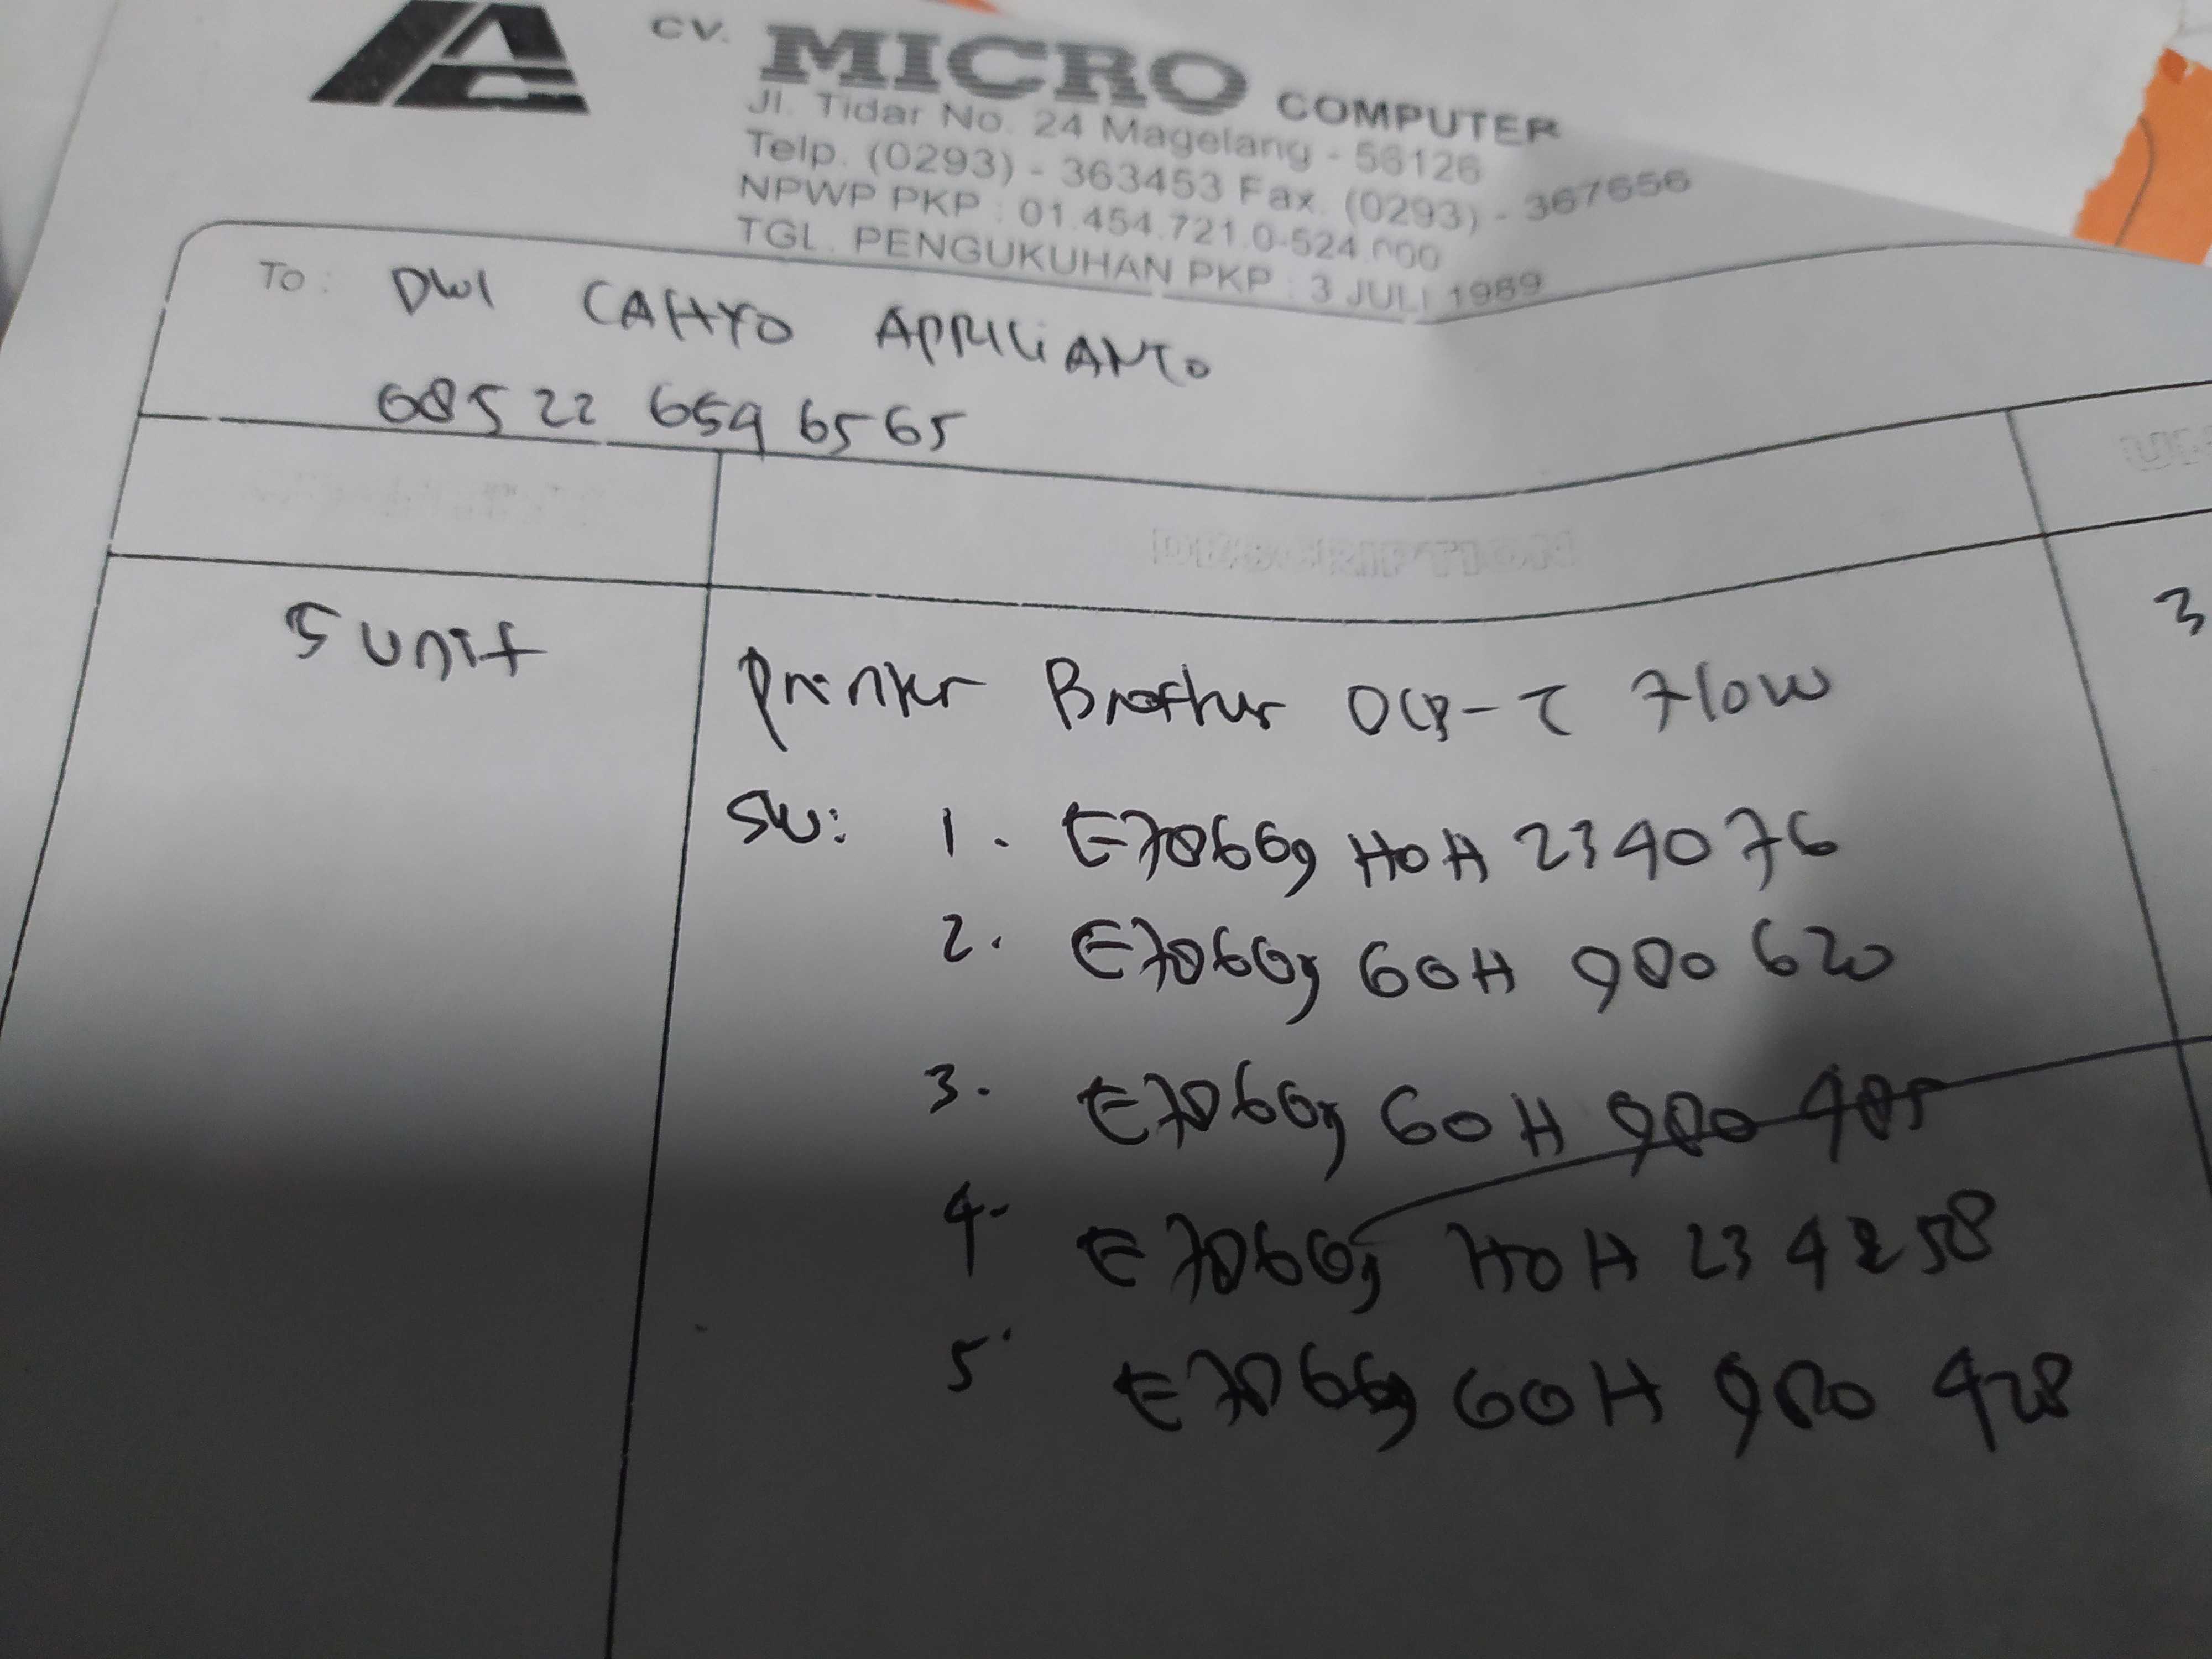 CV. MICRO COMPUTER
Jl. Tidar No. 24 Magelang - 56126
Telp. (0293) - 363453 Fax. (0293) - 367656
NPWP PKP : 01.454.721.0-524.000
TGL. PENGUKUHAN PKP : 3 JULI 1989
To : DWI CAHYO APRILIANTO
08522 659 6565
DESCRIPTION
5 unit
Printer Brother DCP-T 710W
3
SN: 1. E78066g H0H 234076
2. E78066g G0H 980 620
3. E78066g G0H 980 405
4. E78066g H0H 234258
5. E78066g G0H 980 428